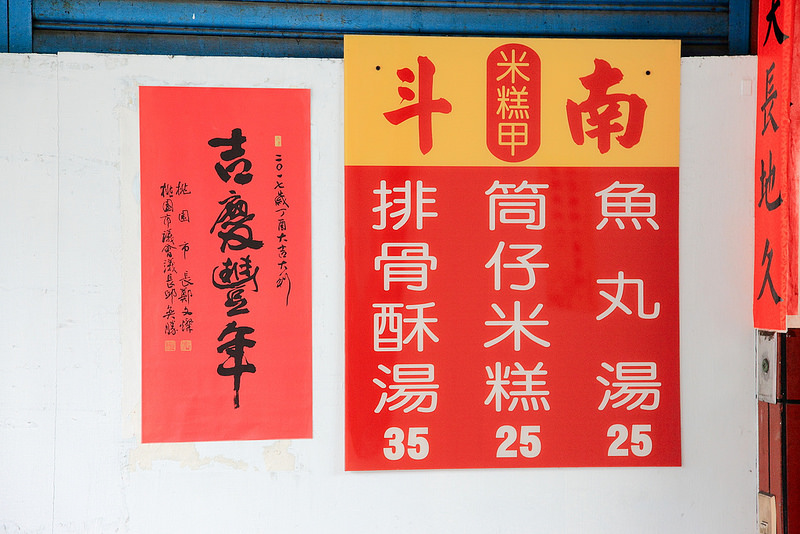 二〇一七歲丁酉大吉大利
吉慶豐年
桃園市長鄭文燦
桃園市議會議長邱奕勝
南
米糕甲
斗
魚丸湯
25
筒仔米糕
25
排骨酥湯
35
天長地久